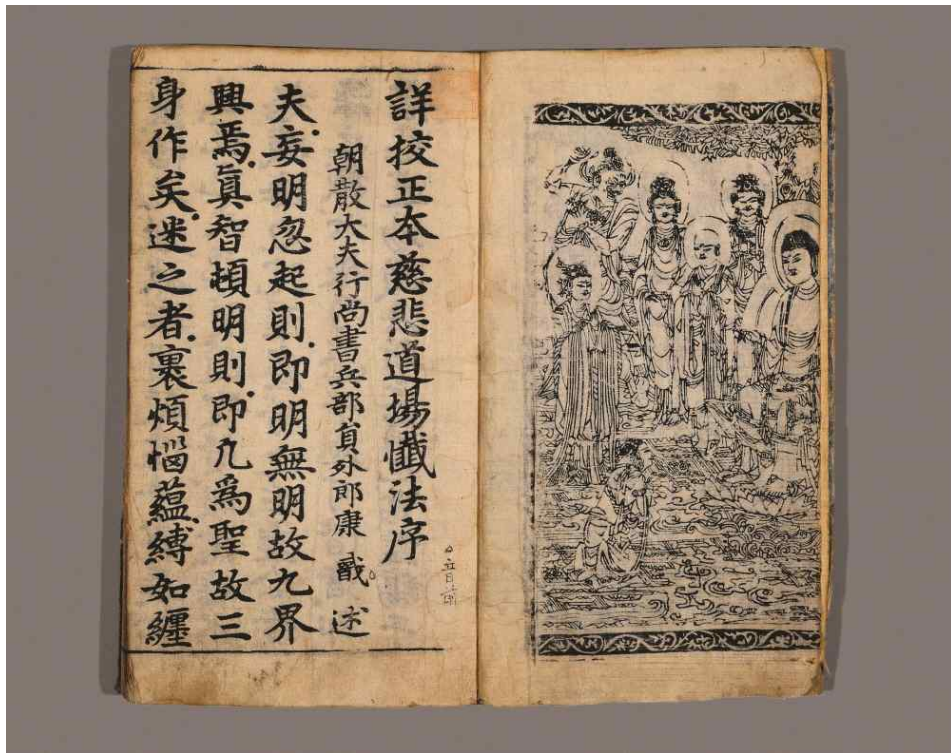 詳挍正本慈悲道場懺法序
朝散大夫行尚書兵部負外郎康戩述
夫妄明忽起則即明無明故九界
興焉眞智頓明則即凢爲聖故三
身作矣迷之者裹煩惱蘊縛如纏